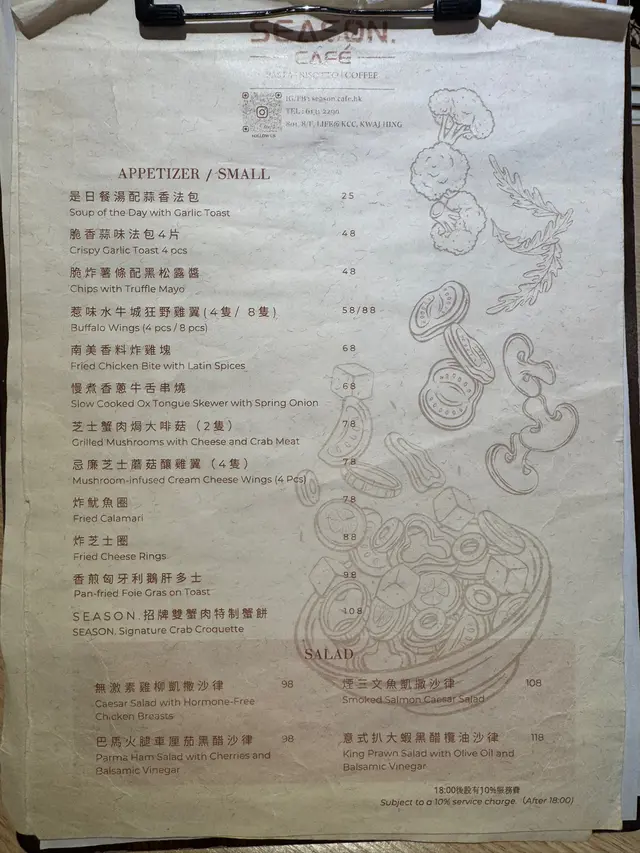 SEASON.
CAFÉ
PASTA · RISOTTO · COFFEE
IG/FB: season.cafe.hk
FOLLOW US
APPETIZER / SMALL
是日餐湯配蒜香法包 25
Soup of the Day with Garlic Toast
脆香蒜味法包4片 48
Crispy Garlic Toast 4 pcs
脆炸薯條配黑松露醬 48
Chips with Truffle Mayo
惹味水牛城狂野雞翼(4隻/ 8隻) 58/88
Buffalo Wings (4 pcs / 8 pcs)
南美香料炸雞塊 68
Fried Chicken Bite with Latin Spices
慢煮香蔥牛舌串燒 68
Slow Cooked Ox Tongue Skewer with Spring Onion
芝士蟹肉焗大啡菇（2隻） 78
Grilled Mushrooms with Cheese and Crab Meat
忌廉芝士蘑菇釀雞翼（4隻） 78
Mushroom-infused Cream Cheese Wings (4 Pcs)
炸魷魚圈 78
Fried Calamari
炸芝士圈 88
Fried Cheese Rings
香煎匈牙利鵝肝多士 98
Pan-fried Foie Gras on Toast
SEASON.招牌雙蟹肉特制蟹餅 108
SEASON. Signature Crab Croquette
SALAD
無激素雞柳凱撒沙律 98
Caesar Salad with Hormone-Free
Chicken Breasts
煙三文魚凱撒沙律 108
Smoked Salmon Caesar Salad
巴馬火腿車厘茄黑醋沙律 98
Parma Ham Salad with Cherries and
Balsamic Vinegar
意式扒大蝦黑醋欖油沙律 118
King Prawn Salad with Olive Oil and
Balsamic Vinegar
18:00後設有10%服務費
Subject to a 10% service charge. (After 18:00)